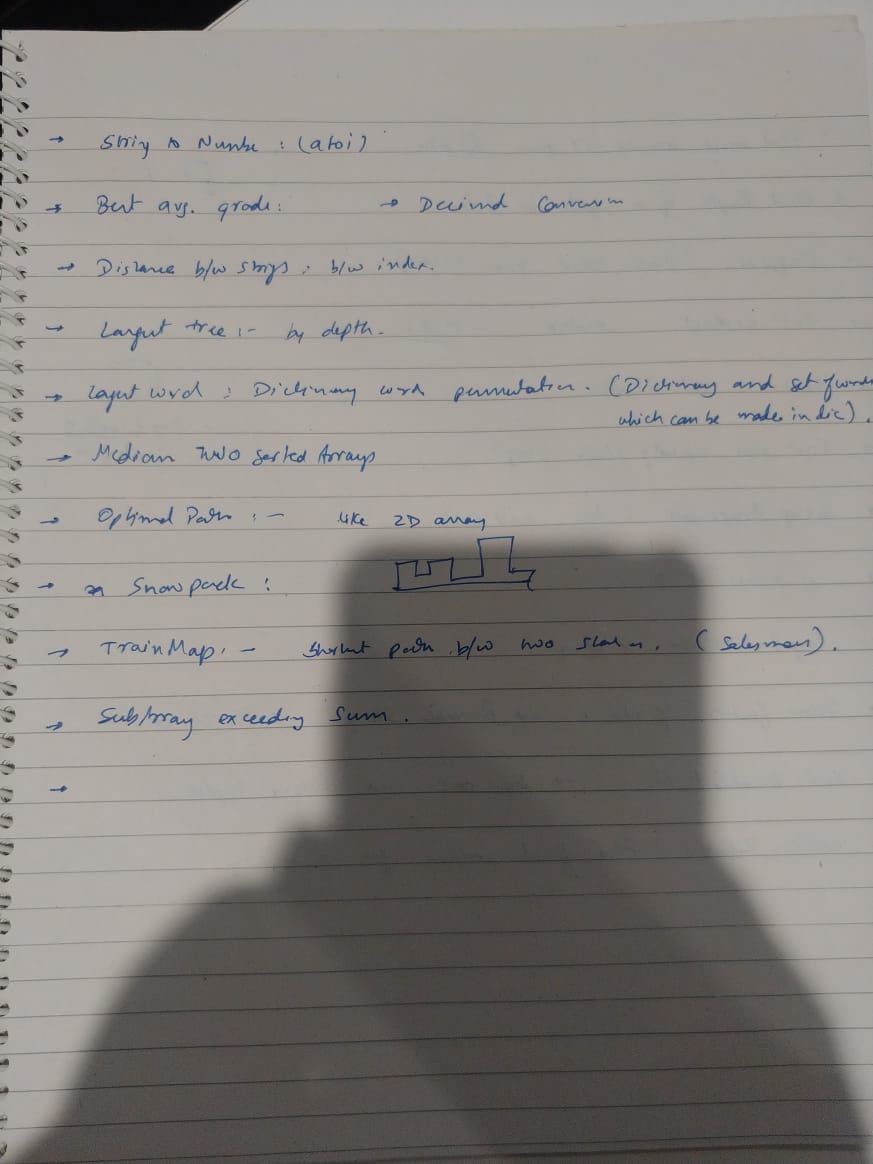 → String to Number : (atoi)
→ Best avg. grade: → Decimal Conversion
→ Distance b/w strings : b/w index.
→ Largest tree :- by depth.
→ Largest word : Dictionary word permutation. (Dictionary and set of words
which can be made in dic).
→ Median Two Sorted Arrays
→ Optimal Path :- like 2D array
→ Snowpack :
→ TrainMap :- Shortest path b/w two station. (Salesman).
→ SubArray exceeding Sum.
→